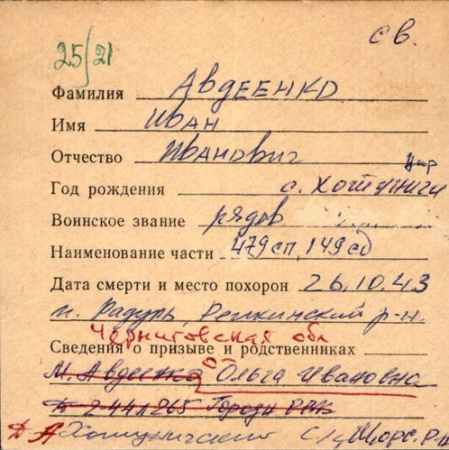 св.
25/21
Фамилия Авдеенко
Имя Иван
Отчество Иванович
Год рождения с. Хотуничи
Воинское звание рядов
Наименование части 479 сп, 149 сд
Дата смерти и место похорон 26.10.43
м. Радуль, Репкинский р-н.
Черниговская обл
Сведения о призыве и родственниках
М. Авдеенко Ольга Ивановна
Д 244 1265 Городн РВК